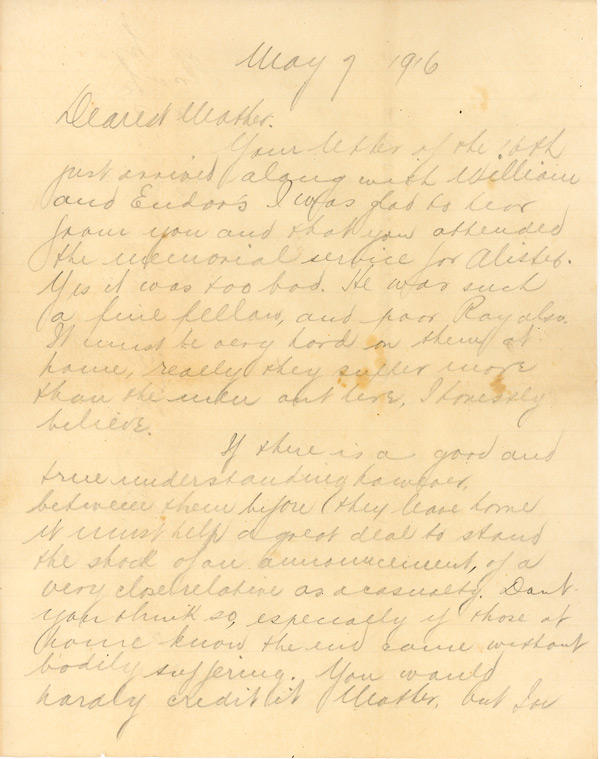 May 9 1916
Dearest Mother.
Your letter of the 16th
just arrived along with William
and Endor's I was glad to hear
from you and that you attended
the memorial service for Alister.
Yes it was too bad. He was such
a fine fellow, and poor Ray also.
It must be very hard on them at
home, really they suffer more
than the men out here, I honestly
believe.
If there is a good and
true understanding however,
between them before they leave home
it must help a great deal to stand
the shock of an announcement, of a
very close relative as a casualty. Don't
you think so, especially if those at
home know the end came without
bodily suffering. You would
hardly credit it Mother, but I've